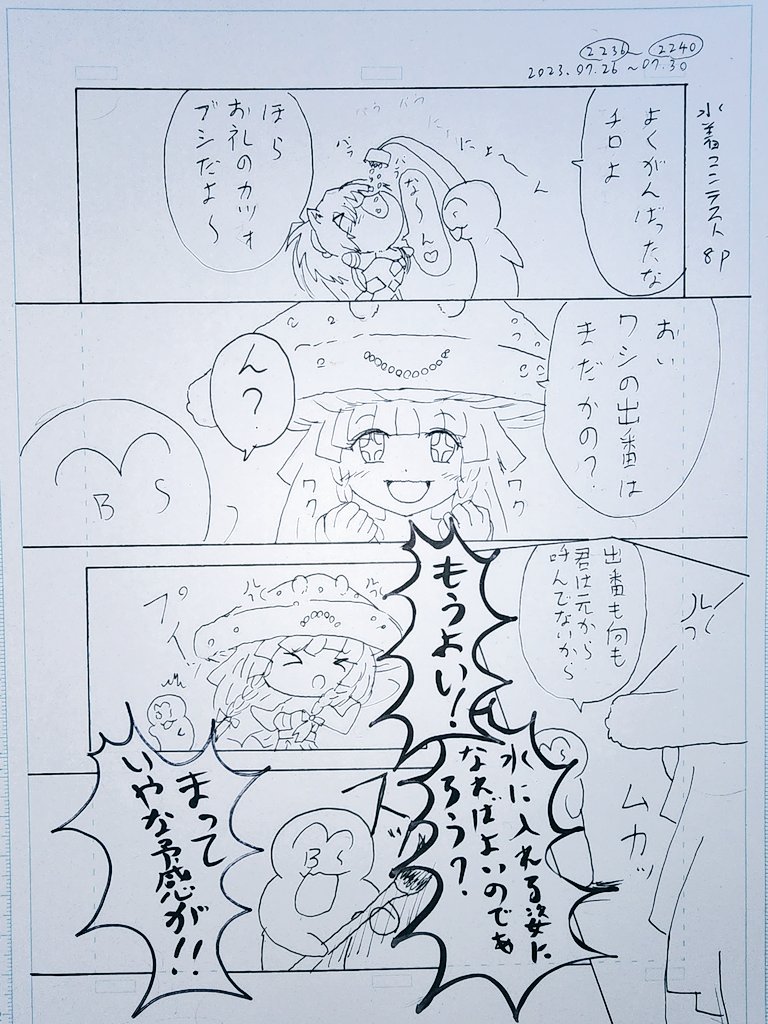 2236～2240
2023.07.26～07.30
水着コンテスト 8P
よくがんばったな
チロよ
にゃ〜ん
な〜ん♡
パラ
パラ
ほら
お礼のカツオ
ブシだよ〜
おい
ワシの出番は
まだかの？
ん？
ワク
ワク
BS
出番も何も
君は元から
呼んでないから
ムカッ
もうよい！
プイ！
水に入れる姿に
なればよいのであ
ろう？
まって
いやな予感が!!